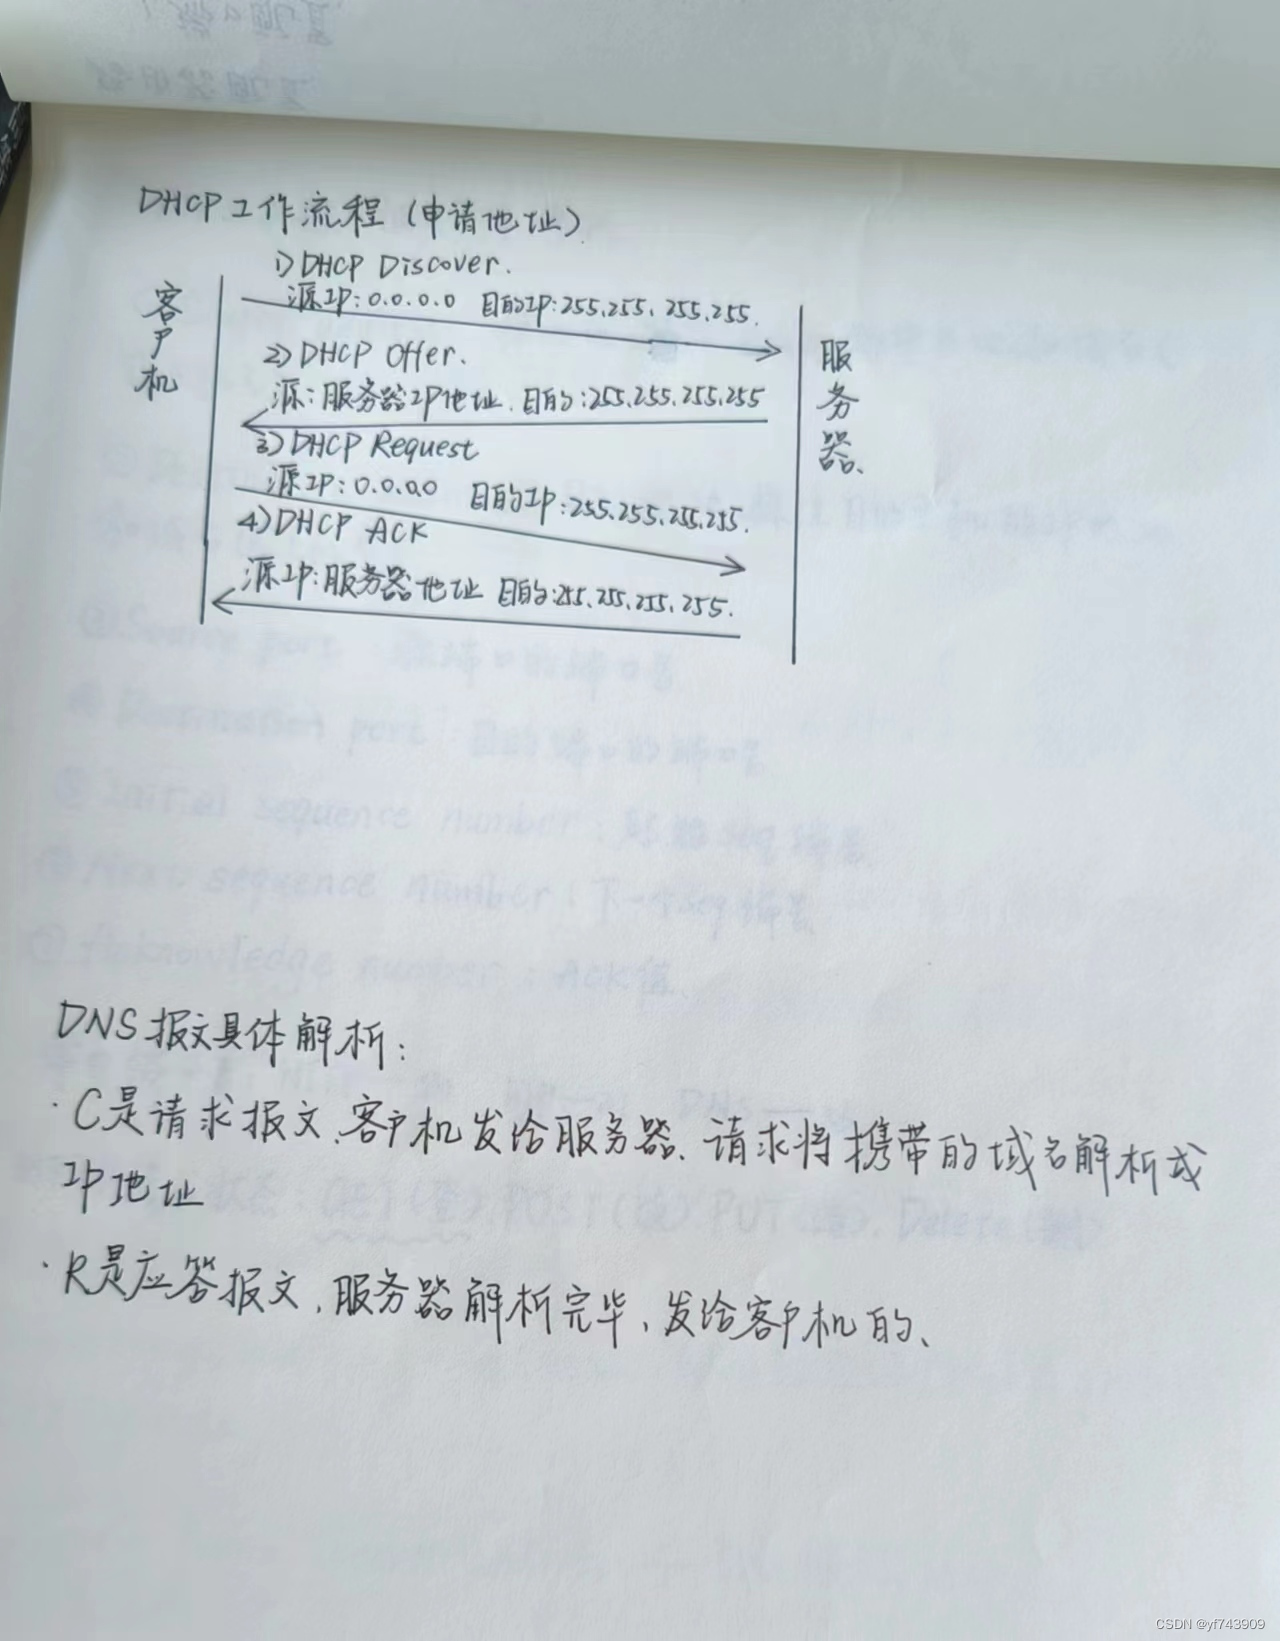 DHCP工作流程（申请地址）
1)DHCP Discover.
客户机
源IP:0.0.0.0 目的IP:255.255.255.255.
服务器.
2)DHCP Offer.
源:服务器IP地址.目的:255.255.255.255
3)DHCP Request
源IP:0.0.0.0 目的IP:255.255.255.255.
4)DHCP ACK
源IP:服务器地址 目的:255.255.255.255.
DNS报文具体解析:
·C是请求报文、客户机发给服务器、请求将携带的域名解析成
IP地址
·R是应答报文,服务器解析完毕、发给客户机的、
CSDN @yf743909